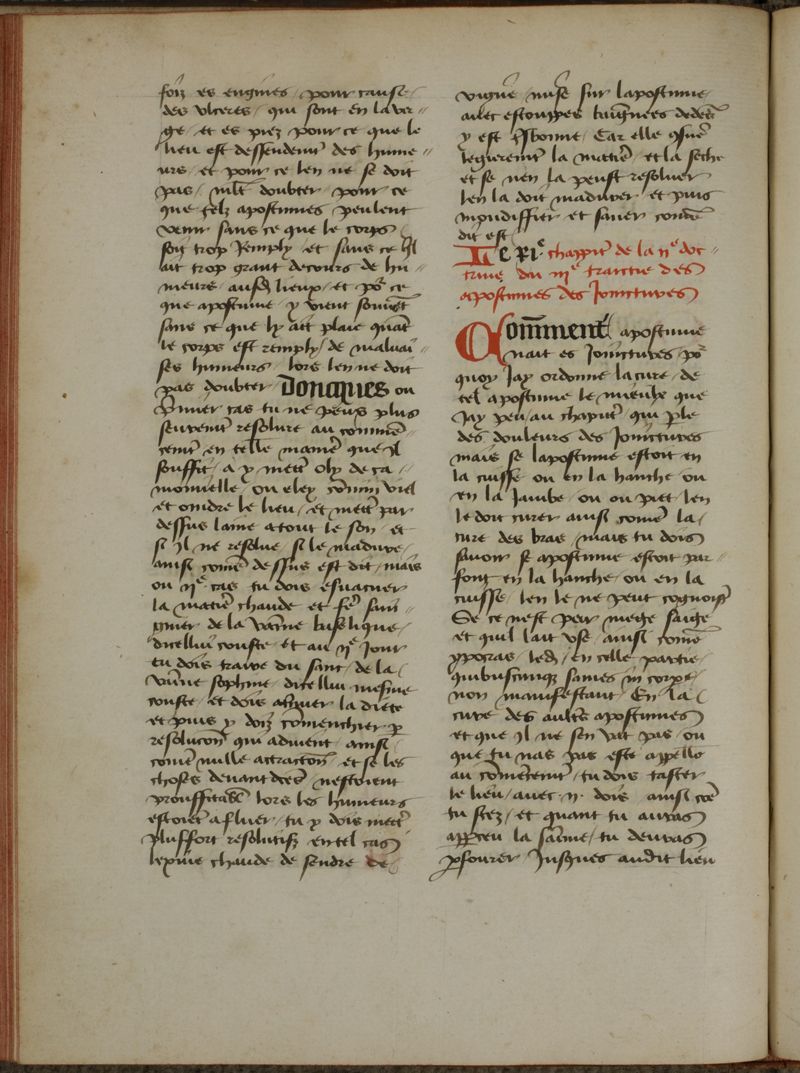 foiz es engines / pour cause /
des ulceres / qui sont en la ver=
ge / et es piez pour ce que le
lieu est dessendent des hume=
urs / et pour ce len ne se doit
pas / mlt doubter / pour ce
que telz apostumes peulent
venir sans ce que le corps
soit trop remply et sans ce quil
ait trop grant decours de hu=
meurs / ausd lieux / et por ce
que apostume / y vient souvet
sans ce que ly ait plaie quat
le corps est remply / de malvai=
ses humeurs / lors len ne doit
pas doubter / Doncques ou
premier cas tu ne peus plus
seuremet resolure au commē=
cemēt en telle manie que il
souffit / a y mett oly de ca /
momille / ou
et oindre le lieu / et mett par
dessus laine atout le son / et
si il ne resolve / si le madure /
ainsi cōme dessus est dit / mais
ou iie cas tu dois esvacuer
la matie chaude et fe sai=
gnier de la vaine basilique /
dicellui couste / et au iie jour
tu dois traire du sanc / de la /
vaine sophene / dicellui mesme
couste / et dois la diete
et puis y doiz cōmenchier p
resolucōn qui adivent ainsi
cōme nulle attractōn / et se les
choses devant dces nestoient
prouffitabl lors les humeurs
estoiet afluer / tu y dois mett
plusfort resolutifz en tel cas
lexive chaude de sendre de
vigne mise sur lapostume
avec estouppes baignees dedes
y est tsbonne / Car elle
la matie / et la seche
et se nen la peust resolver
len la doit madurer et puis
mundiffier et saner come
dit est
Le xie chappitre de la iie doc=
trine du iiie traictie des
apostumes des joinctures
Comment apostume
nait es joinctures / por
quoy jay ordonne la cure / de
tel apostume le mieulx que
jay peu / au chapitre qui ple
des douleurs des joinctures
mais se lapostume estoit en
la cuisse ou en la hanche ou
en la jambe / ou ou piet len
le doit curer ainsi come la /
cure des bras / mais tu dois
savoir se apostume estoit par=
font en la hanche ou en la
cuisse / len le ne peut cognoistre
Se ce nest par mege saige
et quil lait use / ainsi come
ypocras / led / en celle partie /
quibuscunqz sanies in corpe /
non manifestant / En la /
cure des aultres apostumes
et que il ne sen vat pas / ou
que tu nas pas este appelle
au cōmēcement / tu dois taster
le lieu / avec ii dois ainsi cōe
tu scez / et quant tu auras
apperceu la sanie / tu devras
perfourer jusques audit lieu